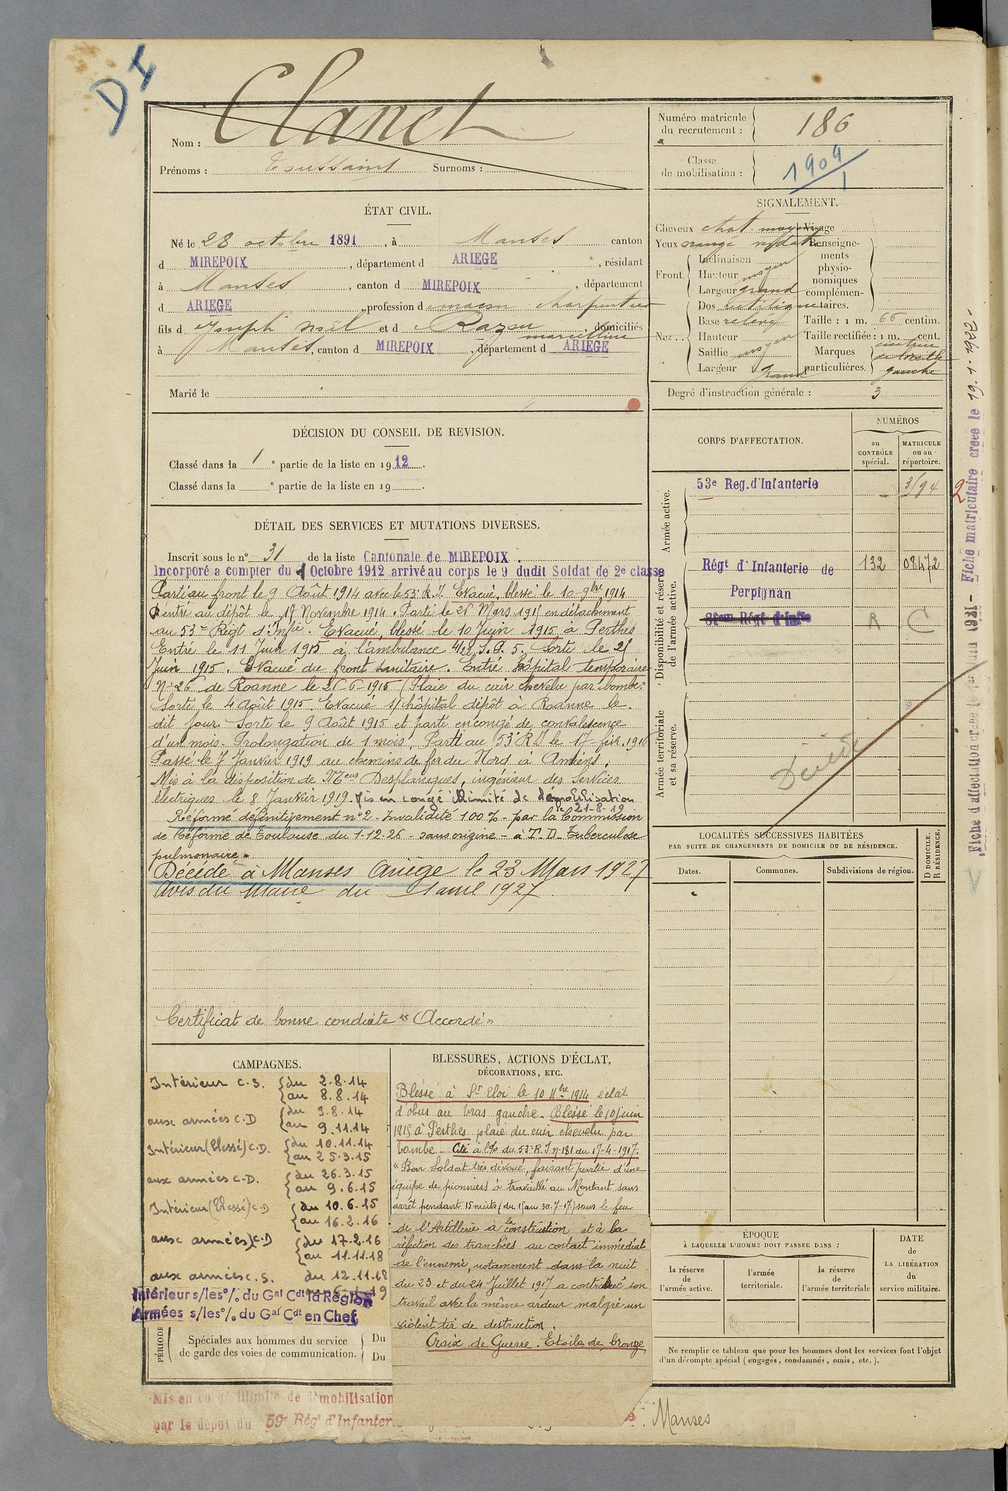 DI
Nom : Clanet
Prénoms : Toussaint Surnoms :
Numéro matricule du recrutement : 186
Classe de mobilisation : 1909
ÉTAT CIVIL.
Né le 28 octobre 1891, à Manses canton
d MIREPOIX, département d ARIEGE, résidant
à Manses, canton d MIREPOIX, département
d ARIEGE, profession d maçon charpentier
fils d Joseph Noël et d Razou Marceline domiciliés
à Manses, canton d MIREPOIX, département d ARIEGE
Marié le
SIGNALEMENT.
Cheveux chat. moyen Visage
Yeux orangé Renseignements physionomiques complémentaires.
Front. Inclinaison
Hauteur moyen
Largeur grand
Nez. Dos rectiligne
Base relevé
Hauteur
Saillie moyen
Largeur grand
Taille : 1 m. 66 centim.
Taille rectifiée : 1 m. cent.
Marques particulières. gauche
Degré d'instruction générale : 3
DÉCISION DU CONSEIL DE REVISION.
Classé dans la 1e partie de la liste en 1912.
Classé dans la e partie de la liste en 19
CORPS D'AFFECTATION.
NUMÉROS
au CONTRÔLE spécial.
MATRICULE ou au répertoire.
Armée active.
53e Reg. d'Infanterie 3194
Disponibilité et réserve de l'armée active.
Régt d'Infanterie de Perpignan 132 08472
R C
Armée territoriale et sa réserve.
Décédé
DÉTAIL DES SERVICES ET MUTATIONS DIVERSES.
Inscrit sous le n° 31 de la liste Cantonale de MIREPOIX.
Incorporé a compter du 1 Octobre 1912 arrivé au corps le 9 dudit Soldat de 2e classe
Parti au front le 9 Août 1914 avec le 53e R.I. Evacué, blessé le 10 9bre 1914
Rentré au dépôt le 19 Novembre 1914. Parti le 26 Mars 1915 en détachement
au 53me Régt d'Infie. Evacué, blessé le 10 Juin 1915 à Perthes
Entré le 11 Juin 1915 à l'ambulance Sortie le 25
Juin 1915. Evacué du front sanitaire. Entré hôpital temporaire
N° 26 de Roanne le 25-6-1915 (Plaie du cuir chevelu par bombe.
Sorte le 4 Août 1915. Evacué s/ hôpital dépôt à Roanne le
dit jour. Sorte le 9 Août 1915 et parti en congé de convalescence
d'un mois. Prolongation de 1 mois. Parti au 53e R.I. le 17 fév. 1916
Passé le 7 Janvier 1919 au chemins de fer du Nord à Amiens.
Mis à la disposition de Mr Desplanques, ingénieur des Services
électriques le 8 Janvier 1919. Mis en congé illimité de démobilisation
le 21-8-19
Réformé définitivement n°2. Invalidité 100 % par la Commission
de Réforme de Toulouse du 1-12-26 - sans origine - à T.D. Tuberculose
pulmonaire.
Décédé à Manses Ariège le 23 Mars 1927
Avis du Maire du 1 avril 1927
Certificat de bonne conduite "Accordé"
LOCALITÉS SUCCESSIVES HABITÉES
PAR SUITE DE CHANGEMENTS DE DOMICILE OU DE RÉSIDENCE.
Dates. Communes. Subdivisions de région. D DOMICILE. R RÉSIDENCE.
CAMPAGNES.
Intérieur C.S. du 2.8.14
au 8.8.14
aux armées C.D du 9.8.14
au 9.11.14
Intérieur (blessé) C.D. du 10.11.14
au 25.3.15
aux armées C.D. du 26.3.15
au 9.6.15
Intérieur (blessé) C.D du 10.6.15
au 16.2.16
aux armées C.D du 17.2.16
au 11.11.18
aux armées C.S. du 12.11.18
Intérieur s/les % du Gal Cdt la Région
Armées s/les % du Gal Cdt en Chef
PÉRIODE
Spéciales aux hommes du service de garde des voies de communication.
Du
Du
BLESSURES, ACTIONS D'ÉCLAT,
DÉCORATIONS, ETC.
Blessé à St Eloi le 10 9bre 1914 éclat
d'obus au bras gauche. Blessé le 10 juin
1915 à Perthes plaie du cuir chevelu par
bombe. Cité à l'O/ du 53e R.I. n° 181 du 17-4-1917.
"Bon soldat très dévoué, faisant partie d'une
équipe de pionniers à travaillé au Montant sans
arrêt pendant 15 nuits (du 1 au 30-7-17) sous le feu
de l'Artillerie à la construction et à la
réfection des tranchées au contact immédiat
de l'ennemi, notamment dans la nuit
du 23 et du 24 Juillet 1917 a continué son
travail avec la même ardeur malgré un
violent tir de destruction.
Croix de Guerre. Etoile de bronze
ÉPOQUE
À LAQUELLE L'HOMME DOIT PASSER DANS :
la réserve de l'armée active.
l'armée territoriale.
la réserve de l'armée territoriale
DATE de LA LIBÉRATION du service militaire.
Ne remplir ce tableau que pour les hommes dont les services font l'objet
d'un décompte spécial (engagés, condamnés, omis, etc.).
Mis en congé illimité de démobilisation
par le dépôt du 59e Régt d'Infanterie
Manses
Fiche matriculaire créée le 19.1.1934